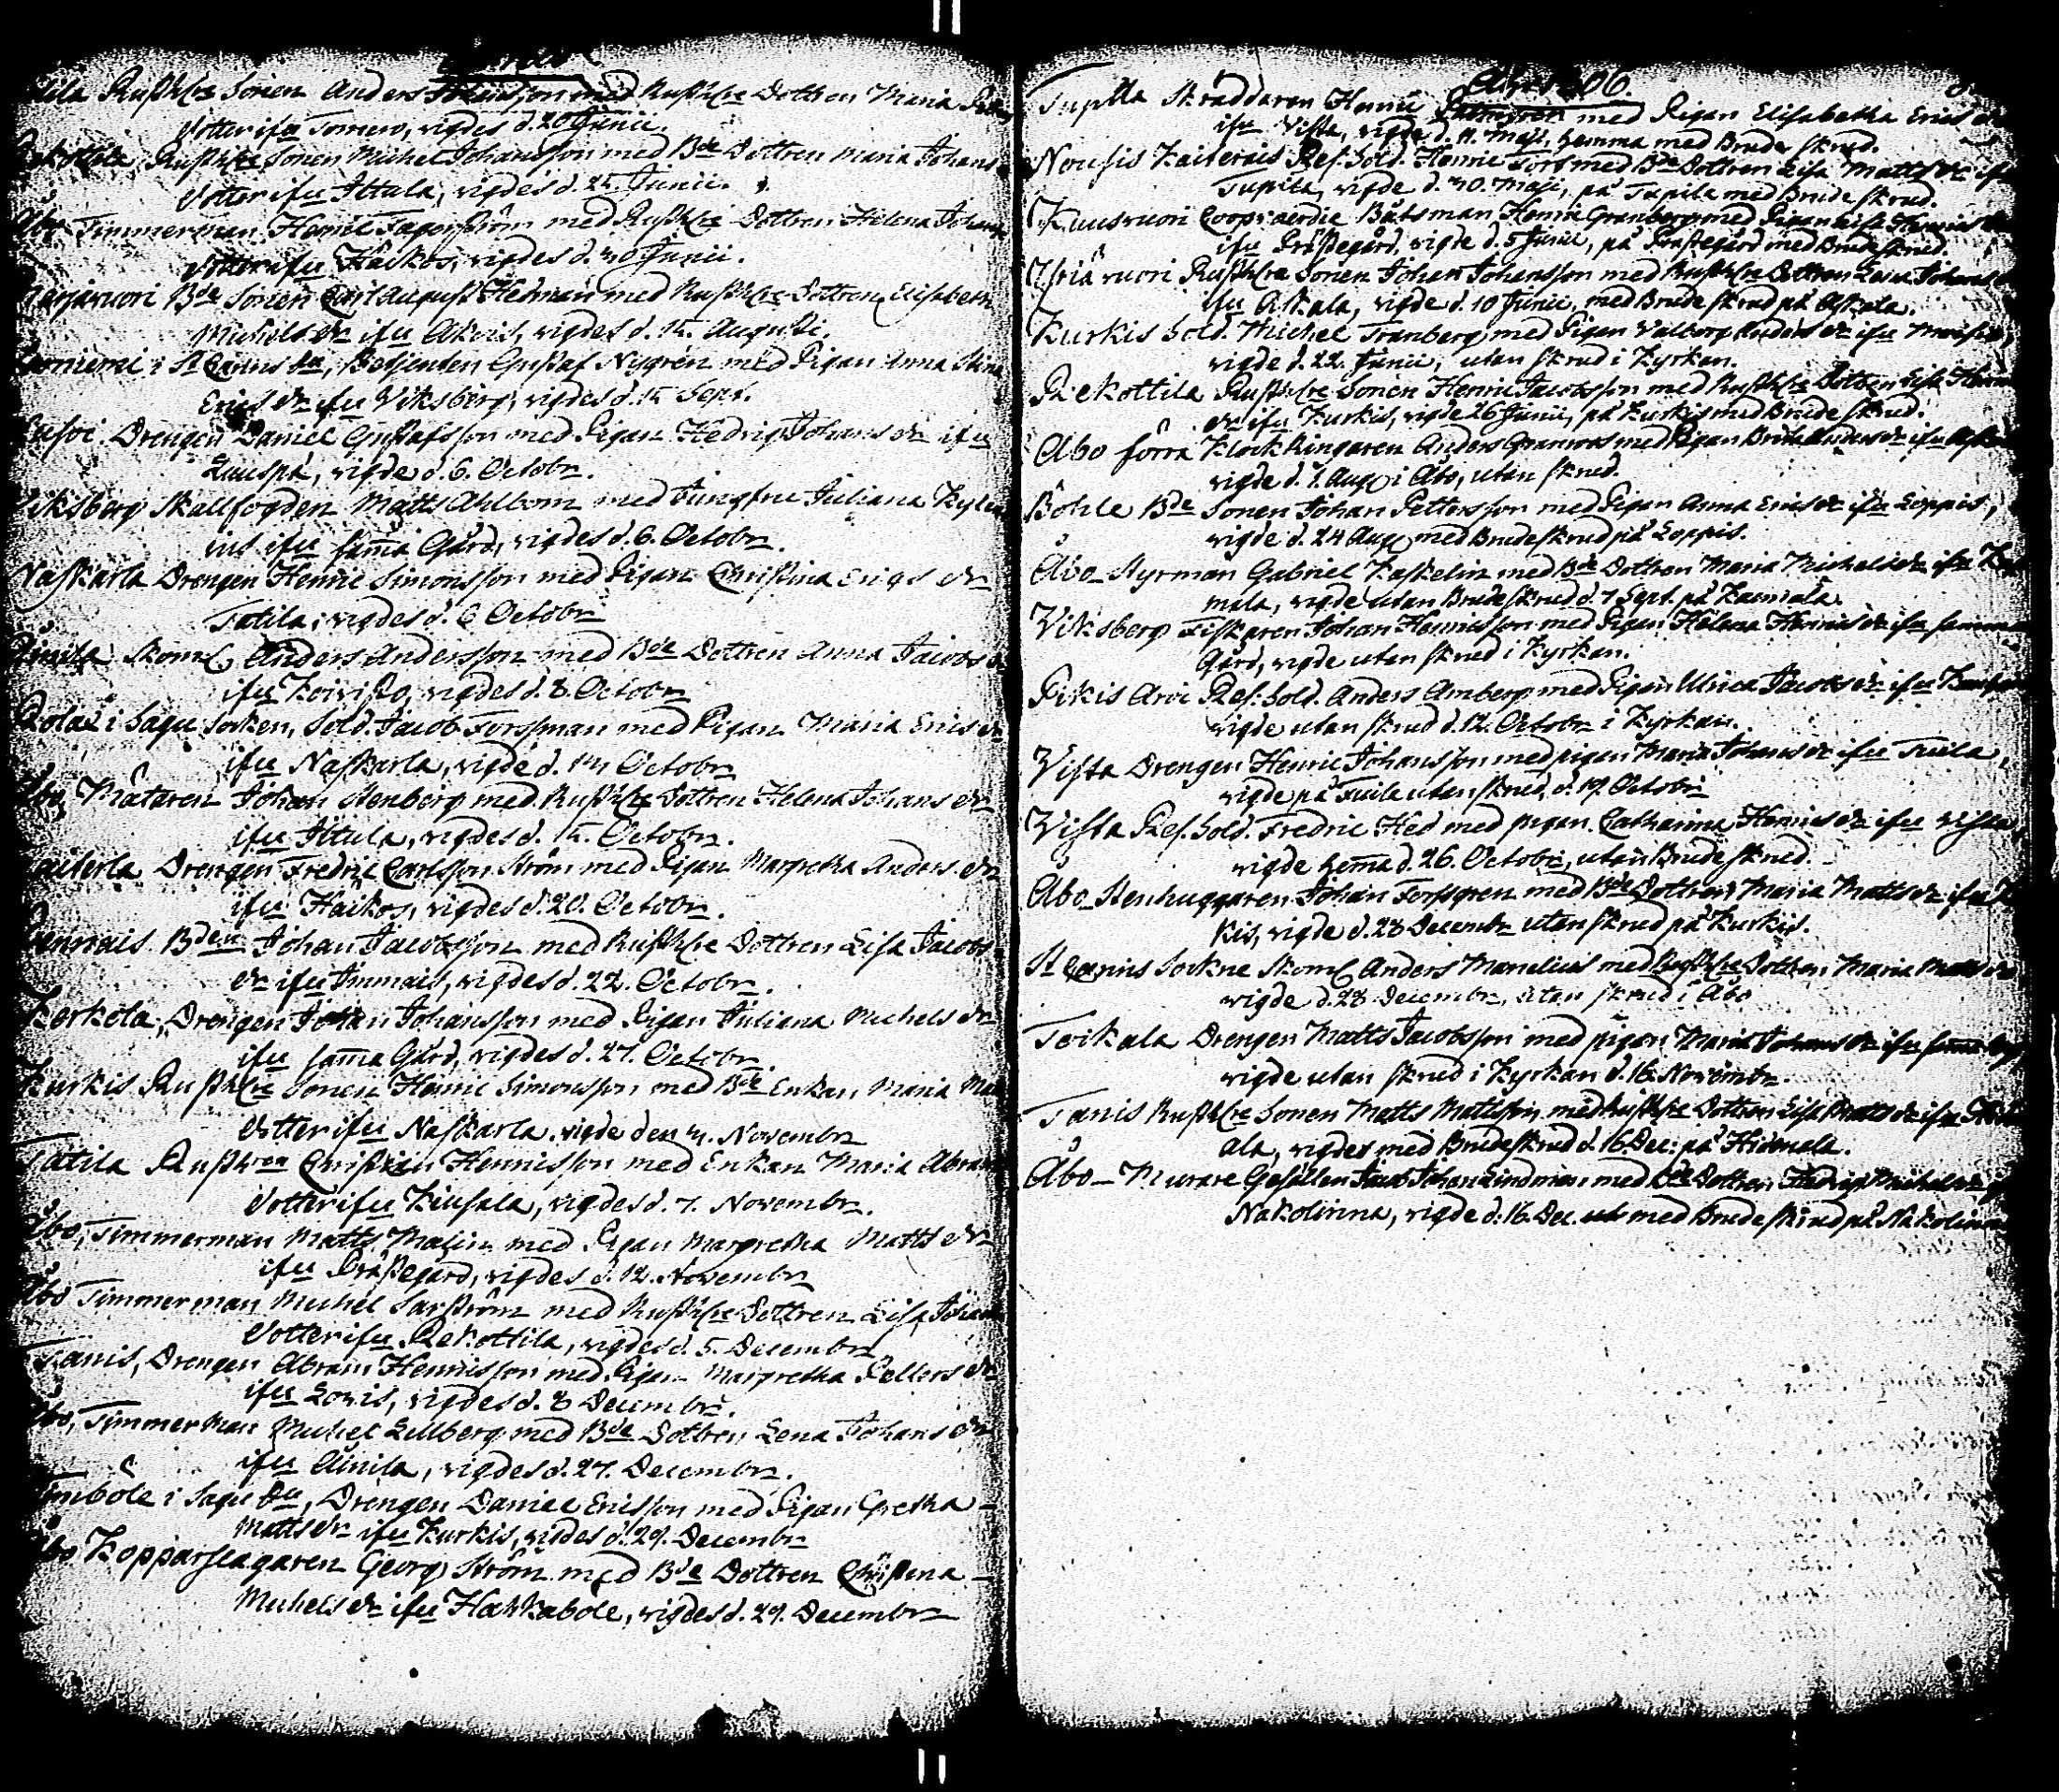 Rusthlre Sonen Anders Johansson med Rusthlre Dottren Maria
dotter ifrn Tomero, vigdes d. 20 Junii.
Rekottila, Rusthlre Sonen Michel Johansson med Bde Dottren Maria Johans
dotter ifrn Ittula, vigdes d. 25 Junii.
Åbo Timmerman Henric Fagerström med Rusthlre Dottren Helena Johans
dotter ifrn Haikos, vigdes d. 30 Junii.
Bde Sonen Carl August Hedman med Rusthlre Dottren Elisabeth
Michels dr ifrn Akois, vigdes d. 15. Augusti.
i St Carins Sn, Betjenten Gustaf Nygrén med Pigan Anna Stina
Erics dr ifrn Viksberg, vigdes d. 15 Sept.
Drengen Daniel Gustafsson med Pigan Hedvig Johans dr ifrn
vigde d. 6. Octobr.
Viksberg Skallfogden Matts Ahlbom med Jungfru Juliana
ifrn samma Gård, vigdes d. 6. Octobr.
Naskarla Drengen Henric Simonsson med Pigan Christina Erics dr
Tatila, vigdes d. 6 Octobr
Skom. Anders Andersson med Bde Dottren Anna Jacobs dr
ifrn Koivisto, vigdes d. 8. Octobr
i Sagu Socken, Sold. Jacob Forssman med Pigan Maria Erics dr
ifrn Naskarla, vigde d. 14 Octobr
Åbo, Mätaren Johan Stenberg med Rusthlre Dottren Helena Johans dr
ifrn Ittula, vigdes d. 15. Octobr.
Drengen Fredric Carlsson Ström med Pigan Margretha Anders dr
ifrn Haikos, vigdes d. 20. Octobr.
Bden Johan Jacobsson med Rusthlre Dottren Lisa Jacobs
dr ifrn Immais, vigdes d. 22. Octobr.
Kerkola, Drengen Johan Johansson med Pigan Juliana Michels dr
ifrn samma Gård, vigdes d. 27. Octobr.
Kurkis Rusthlre Sonen Henric Simonsson med Bde Enkan, Maria
dotter ifrn Naskarla, vigde den Novembr
Tatila Rusthren Christian Henricsson med Enkan Maria Abrams
dotter ifrn Kiusala, vigdes d. 7. Novembr.
Åbo, Timmerman Matts Malin med Pigan Margretha Matts dr
ifrn Prästegård, vigdes d. 12. Novembr
Åbo Timmerman Michel Sarström med Rusthlre Dottren Lisa Johans
dotter ifrn Rekottila, vigdes d. 5. Decembr
Tanis, Drengen Abram Henricsson med Pigan Margretha Petters dr
ifrn Lovis, vigdes d. 8 Decembr.
Åbo, Timmerman Michel Lillberg med Bde Dottren Lena Johans dr
ifrn Ainila, vigdes d. 27. Decembr.
i Sagu Sn, Drengen Daniel Ericsson med Pigan Gretha
Matts dr ifrn Kurkis, vigdes d. 29. Decembr
Åbo Kopparslagaren Georg Ström med Bde Dottren Christina
Michels dr ifrn Hakkabole, vigdes d. 29. Decembr
Tupila Skräddaren Henric med Pigan Elisabetha Erics dr
ifrn Vista, vigde d. 11. Maji, hemma med Brudeskrud.
Nousis Kaiterais Ref. Sold. Henric Fors med Bde Dottren Lisa Matts dr ifrn
Tupila, vigde d. 30. Maji, på Tupila med Brudeskrud.
Kuusvuori Coopvaerdie Båtsman Henric Granberg med Pigan Lisa Henrics dr
ifrn Prästegård, vigde d. 5 Junii, på Prästegård med Brudeskrud.
Rusthlre Sonen Johan Johansson med Rusthlre Dottren Lena Johans dr
ifrn Askala, vigde d. 10 Junii, med Brudeskrud på Askala.
Kurkis Sold. Michel Tranberg med Pigan Valborg Anders dr ifrn
vigde d. 22. Junii, utan skrud i Kyrkan.
Rekottila Rusthlre Sonen Henric Jacobsson med Rusthlre Dottren Lisa Henrics
dr ifrn Kurkis, vigde 26 Junii, på Kurkis med Brudeskrud.
Åbo förra Klockringaren Anders Granroos med Pigan Brita Anders dr ifrn
vigde d. 7. Aug i Åbo, utan skrud.
Böhle Bde Sonen Johan Pettersson med Pigan Anna Erics dr ifrn Loppis,
vigde d. 24 Aug med Brudeskrud på Loppis.
Åbo Styrman Gabriel Kaskelin med Bde Dottren Maria Michels dr ifrn
mala, vigde utan Brudeskrud d. 7 Sept. på
Viksberg Fiskaren Johan Henricsson med Pigan Helena Henrics dr ifrn samma
Gård, vigde utan skrud i Kyrkan.
Pikis Arvi Ref. Sold. Anders Amberg med Pigan Ulrica Jacobs dr ifrn
vigde utan skrud d. 12. Octobr i Kyrkan.
Vista Drengen Henric Johansson med pigan Maria Johans dr ifrn Tuila,
vigde på Tuila utan skrud, d. 19. Octobr
Vista Ref. Sold. Fredric Hed med pigan Catharina Henrics dr ifrn Vista,
vigde hemma d. 26. Octobr, utan Brudeskrud.
Åbo Stenhuggaren Johan Forsgren med Bde Dottren Maria Matts dr ifrn
kis, vigde d. 28 Decembr utan skrud på Kurkis.
St Carins Sockne Skom. Anders Mamelius med Rusthlre Dottren Maria Matts dr
vigde d. 28 Decembr, utan skrud i Åbo
Toikala Drengen Matts Jacobsson med pigan Maria Johans dr ifrn samma
vigde utan skrud i Kyrkan d. 16 Novembr.
Tanis Rusthlre Sonen Matts Mattsson med Rusthlre Dottren Lisa Matts dr ifrn
ala, vigdes med Brudeskrud d. 16 Dec: på
Åbo - Murare Gesällen Johan Lindman med Bde Dottren Hedvig Michels dr
Nakolinna, vigde d. 16. Dec. med Brudeskrud på Nakolinna